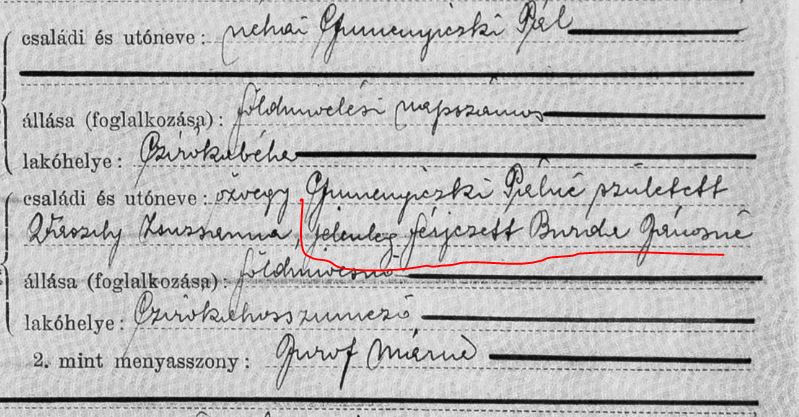 családi és utóneve: néhai Gumenyiczki Pál
állása (foglalkozása): földmivelési napszámos
lakóhelye: Czirókabéla
családi és utóneve: özvegy Gumenyiczki Pálné született
Vaszily Zsuzsanna, jelenleg férjezett Burda Jánosné
állása (foglalkozása): földmivesnő
lakóhelye: Czirókahosszumező
2. mint menyasszony: Jurof Mária